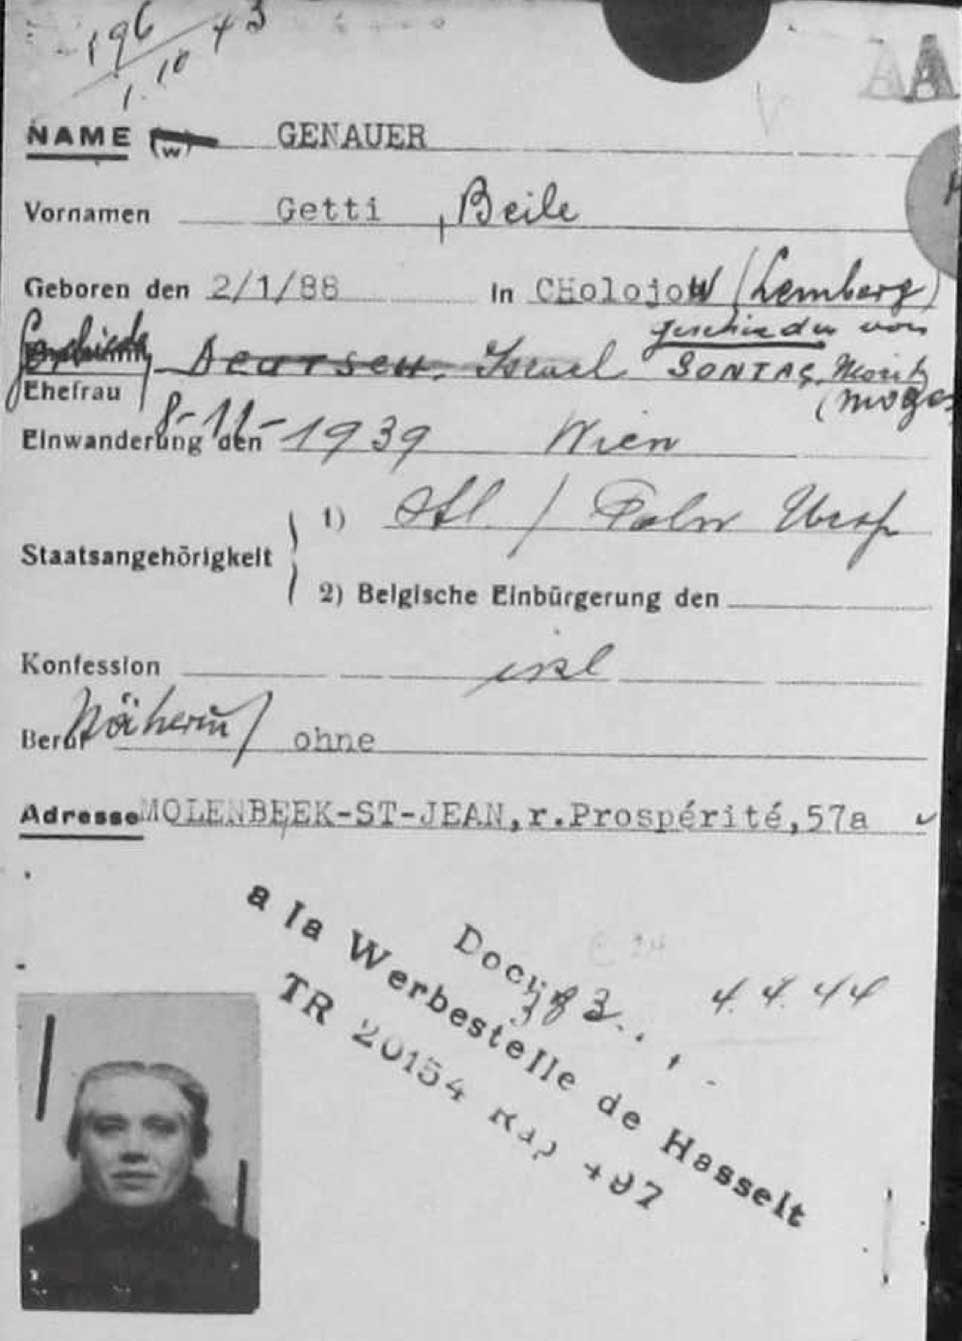 196/43
1.10
AA
NAME (w) GENAUER
Vornamen Getti, Beile
Geboren den 2/1/88 in CHolojoW (Lemberg)
geschieden von
Israel SONTAG, Moritz
Ehefrau (Moses
Einwanderung den 8-11-1939 Wien
Staatsangehörigkeit 1) Stl. / Poln Urspr
2) Belgische Einbürgerung den
Konfession isrl
Beruf Näherin/ ohne
Adresse MOLENBEEK-ST-JEAN, r.Prospérité, 57a
Docum 383.. 4.4.44
a la Werbestelle de Hasselt
TR 20154 Rap 497